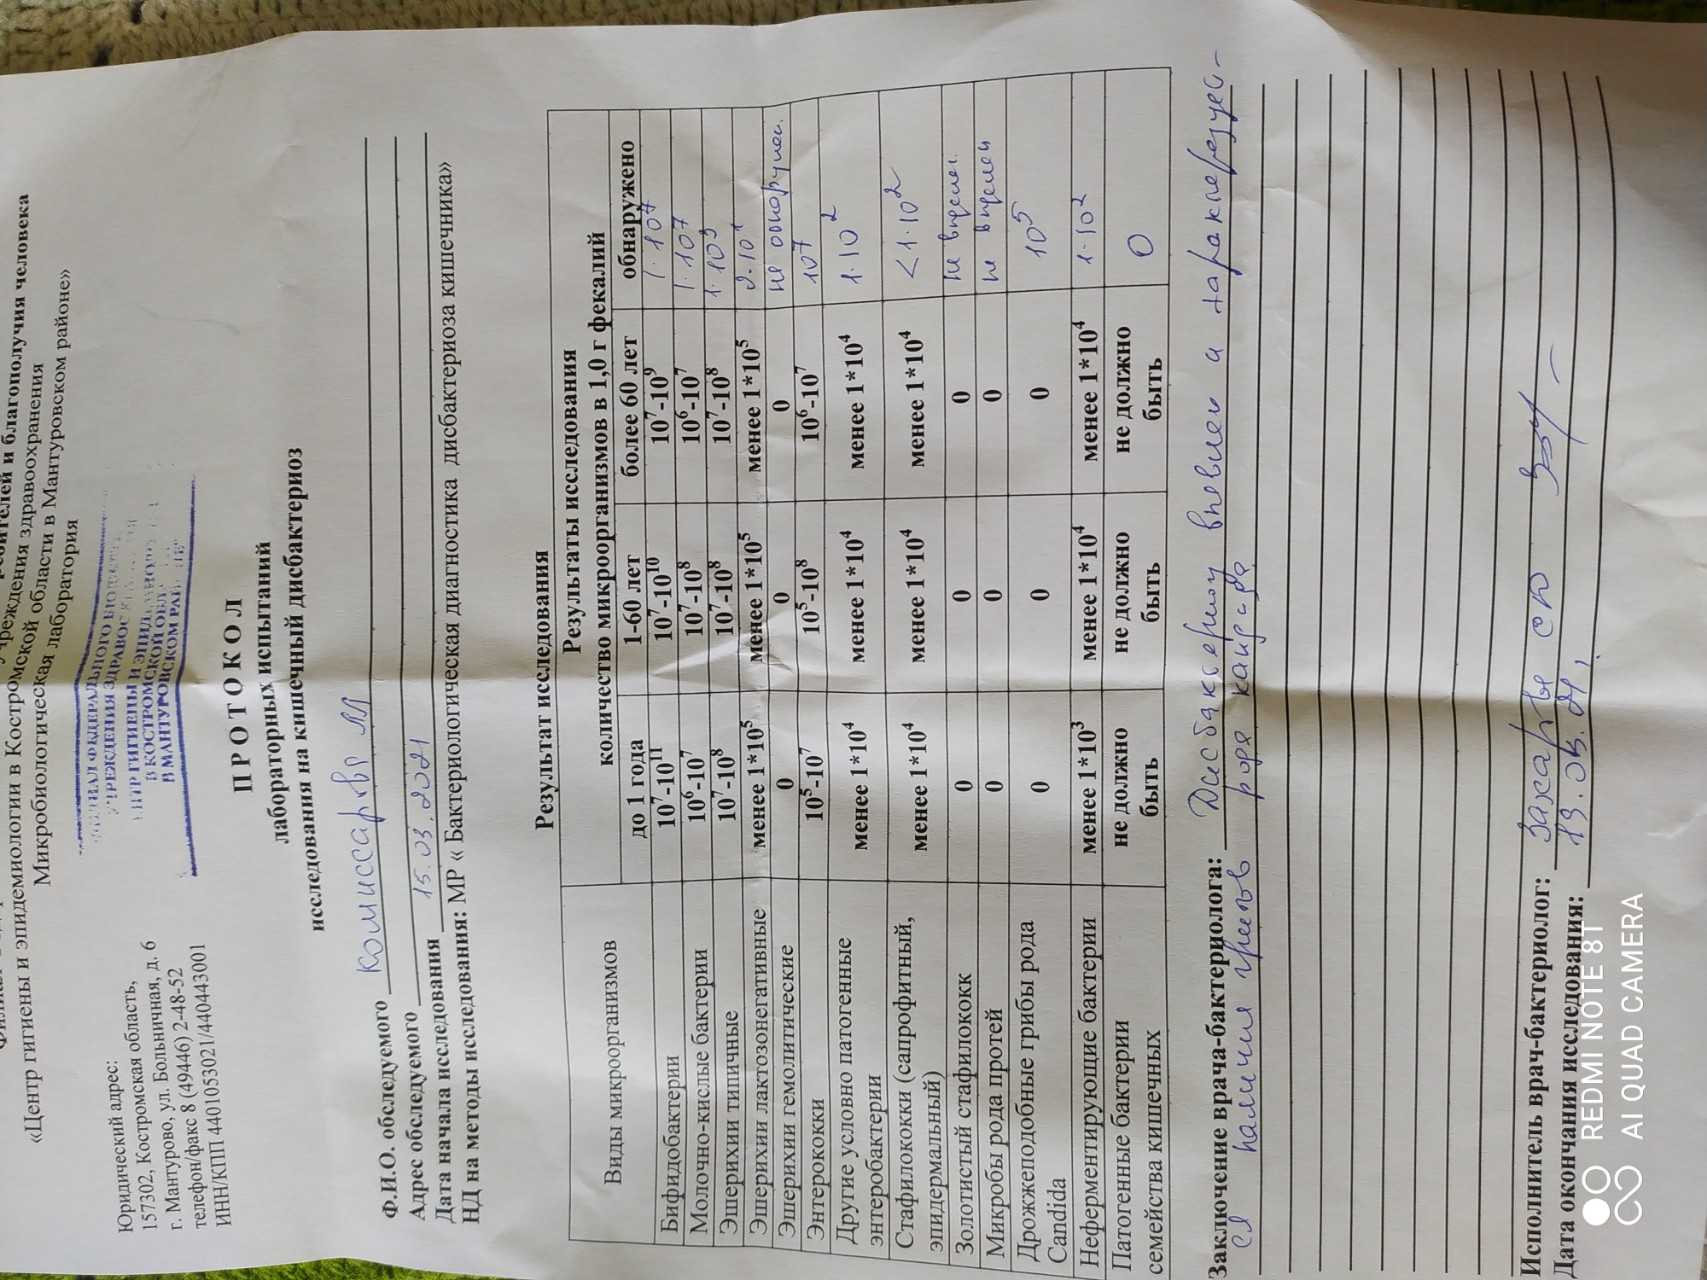 «Центр гигиены и эпидемиологии в Костромской области в Мантуровском районе»
Микробиологическая лаборатория
В КОСТРОМСКОЙ ОБЛ
В МАНТУРОВСКОМ РАЙ
Юридический адрес:
157302, Костромская область,
г. Мантурово, ул. Больничная, д. 6
телефон/факс 8 (49446) 2-48-52
ИНН/КПП 4401053021/440443001
ПРОТОКОЛ
лабораторных испытаний
исследования на кишечный дисбактериоз
Ф.И.О. обследуемого Комиссарова
Адрес обследуемого
Дата начала исследования 15.03.2021
НД на методы исследования: МР « Бактериологическая диагностика дисбактериоза кишечника»
Результат исследования
Виды микроорганизмов Результаты исследования
количество микроорганизмов в 1,0 г фекалий
до 1 года 1-60 лет более 60 лет обнаружено
Бифидобактерии 10⁷-10¹¹ 10⁷-10¹⁰ 10⁷-10⁹ 1·10⁷
Молочно-кислые бактерии 10⁶-10⁷ 10⁷-10⁸ 10⁶-10⁷ 1·10⁷
Эшерихии типичные 10⁷-10⁸ 10⁷-10⁸ 10⁷-10⁸
Эшерихии лактозонегативные менее 1*10⁵ менее 1*10⁵ менее 1*10⁵
Эшерихии гемолитические 0 0 0 не обнаружен.
Энтерококки 10⁵-10⁷ 10⁵-10⁸ 10⁶-10⁷ 10⁷
Другие условно патогенные энтеробактерии менее 1*10⁴ менее 1*10⁴ менее 1*10⁴ 1·10²
Стафилококки (сапрофитный, эпидермальный) менее 1*10⁴ менее 1*10⁴ менее 1*10⁴ <1·10²
Золотистый стафилококк 0 0 0 не выделен.
Микробы рода протей 0 0 0 не выделен
Дрожжеподобные грибы рода Candida 0 0 0 10⁵
Неферментирующие бактерии менее 1*10³ менее 1*10⁴ менее 1*10⁴ 1·10²
Патогенные бактерии семейства кишечных не должно быть не должно быть не должно быть 0
Заключение врача-бактериолога: Дисбактериоз выявлен и характеризует-
ся наличием грибов рода кандида
Исполнитель врач-бактериолог: Захарова
Дата окончания исследования:
REDMI NOTE 8T
AI QUAD CAMERA